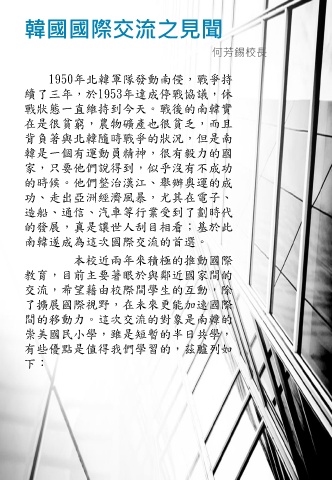 韓國國際交流之見聞
何芳錫校長
1950年北韓軍隊發動南侵，戰爭持
續了三年，於1953年達成停戰協議，休
戰狀態一直維持到今天。戰後的南韓實
在是很貧窮，農物礦產也很貧乏，而且
背負著與北韓隨時戰爭的狀況，但是南
韓是一個有運動員精神，很有毅力的國
家，只要他們說得到，似乎沒有不成功
的時候。他們整治漢江、舉辦奧運的成
功、走出亞洲經濟風暴，尤其在電子、
造船、通信、汽車等行業受到了劃時代
的發展，真是讓世人刮目相看；基於此
南韓遂成為這次國際交流的首選。
本校近兩年來積極的推動國際
教育，目前主要著眼於與鄰近國家間的
交流，希望藉由校際間學生的互動，除
了擴展國際視野，在未來更能加速國際
間的移動力。這次交流的對象是南韓的
崇美國民小學，雖是短暫的半日共學，
有些優點是值得我們學習的，茲臚列如
下：